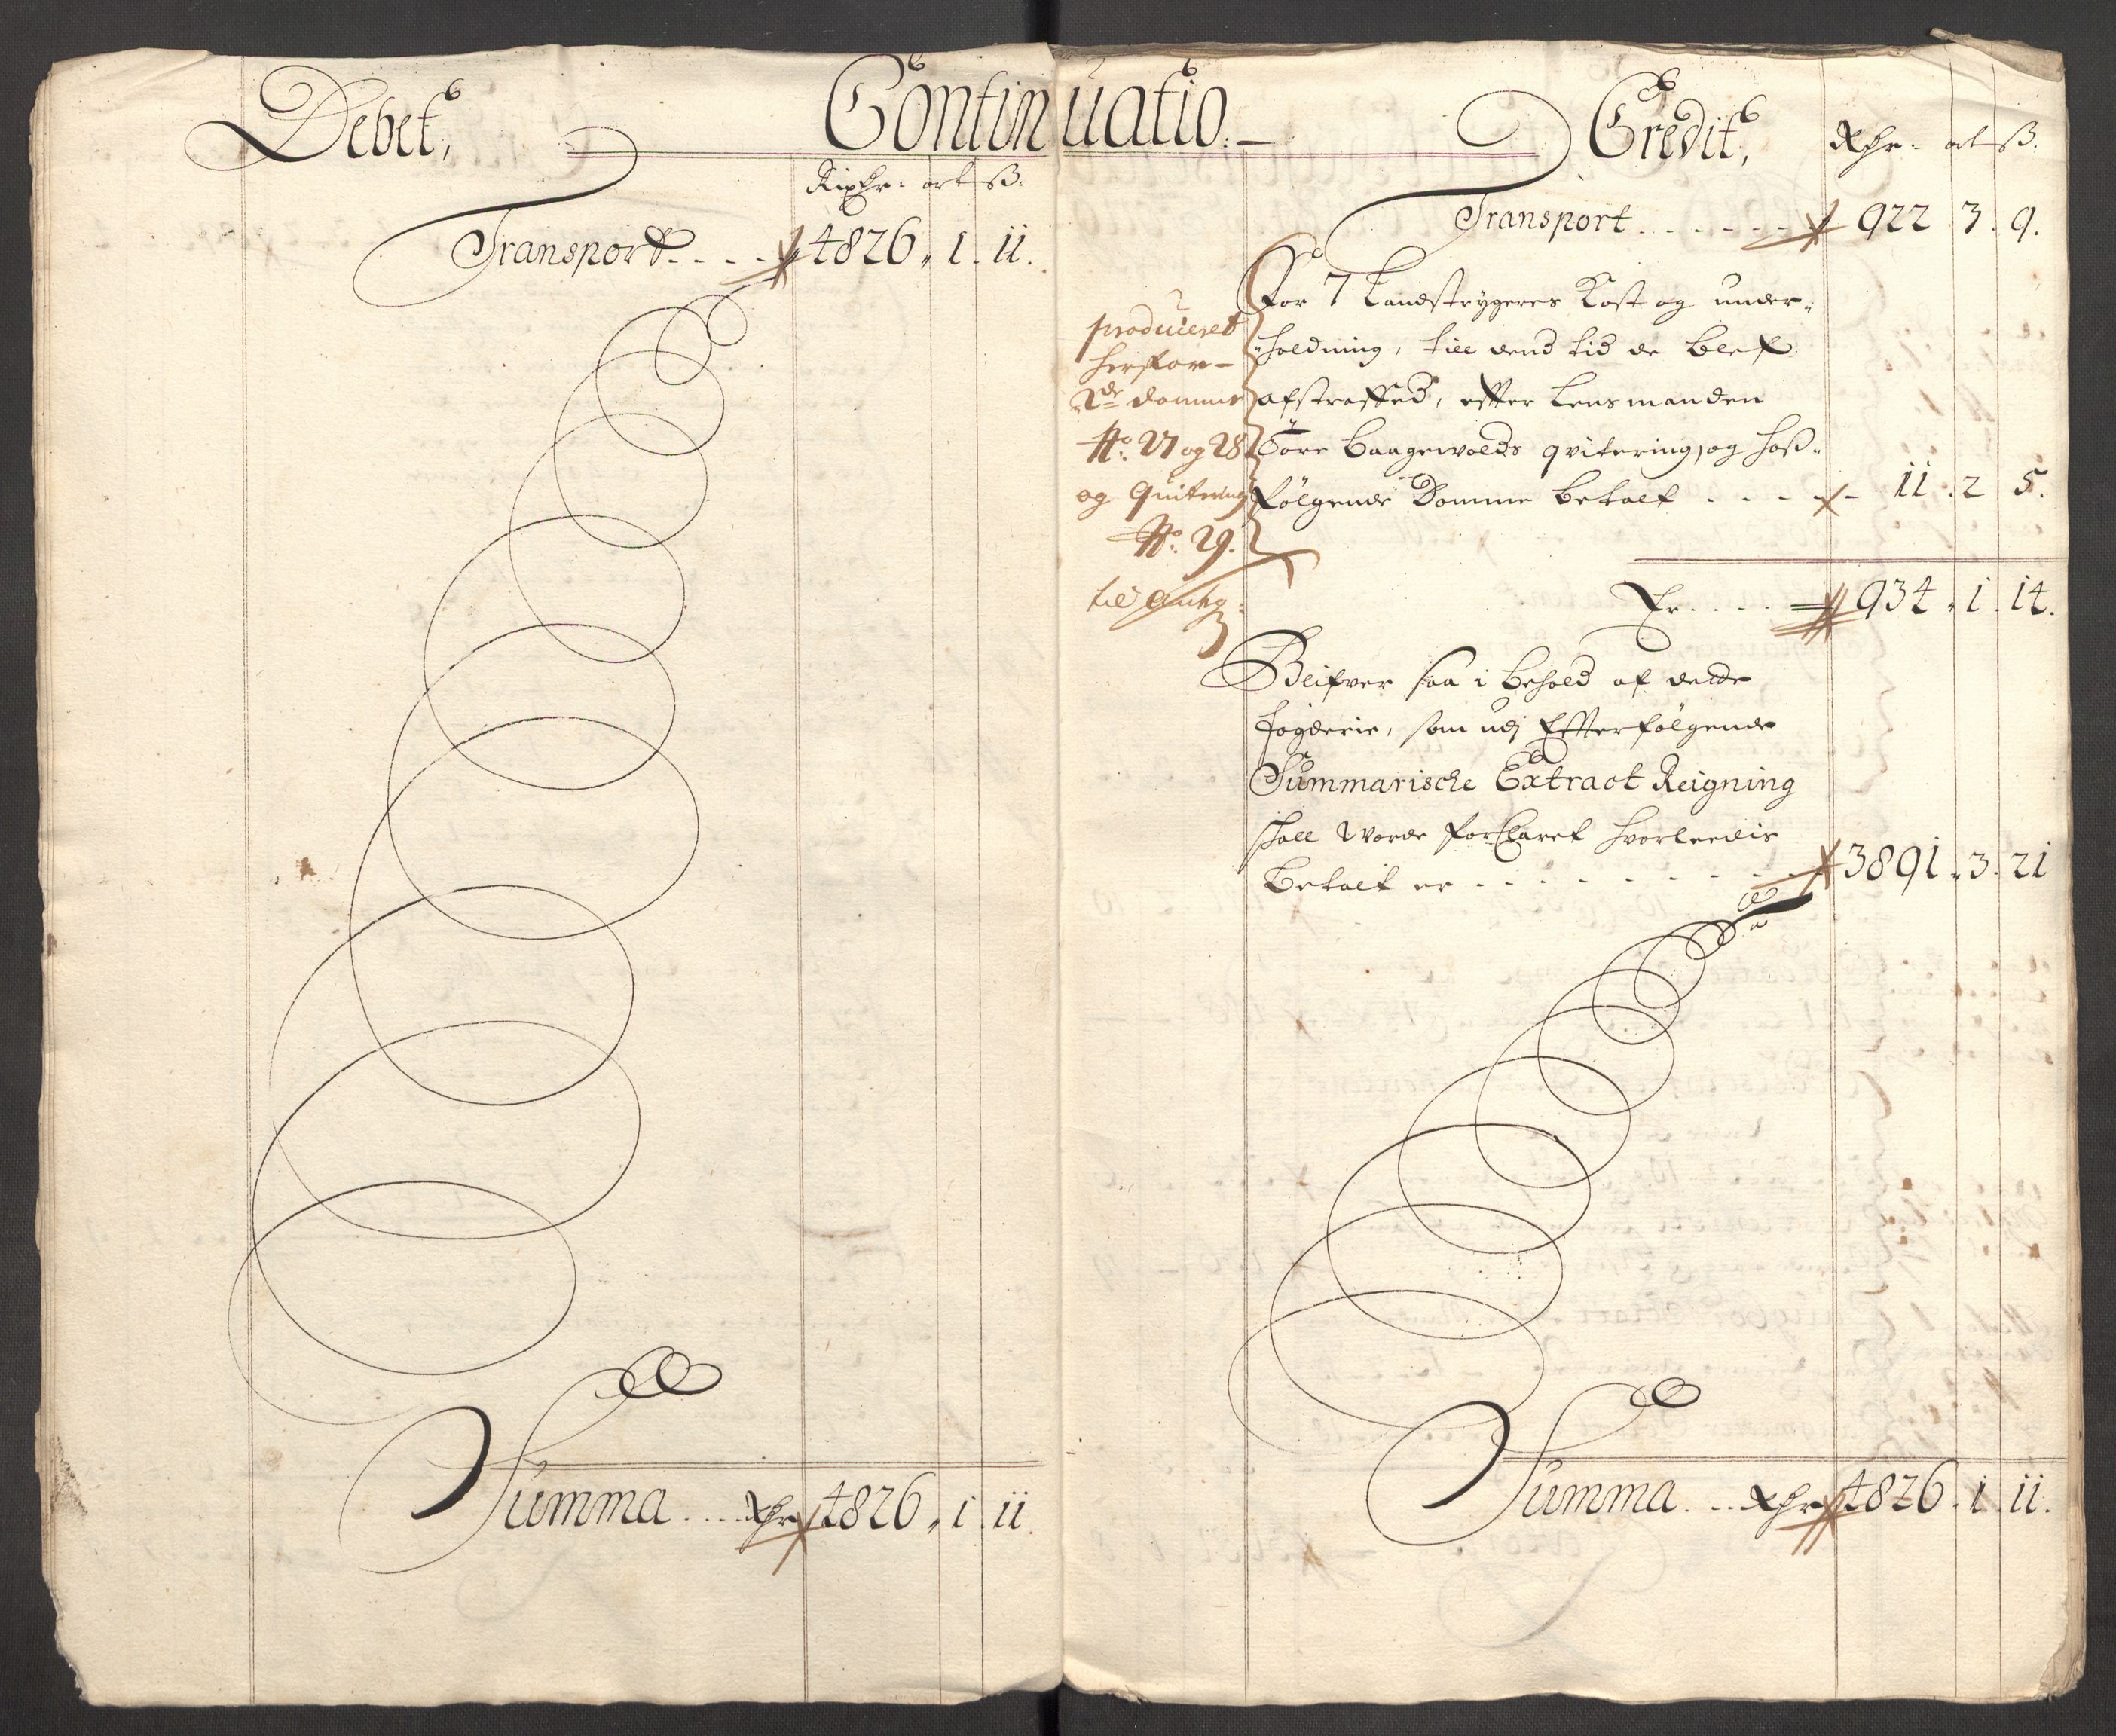 Debet,
Continuatio.
Rixdr: ort ß:
Transport. . . . 4826. 1. 11.
Summa .... Rdr 4826. 1. 11.
Credit,
Rdr: ort ß.
Transport . . . . . . 922. 3. 9.
For 7 Landstrygeres Kost og under-
holdning, till dend tid de blef
afstraffed, effter Lensmanden
Tore Baagewolds qvitering, og hoß-
følgende Domme betalt . . . . 11. 2. 5.
produceret
herfor
2de domme
No. 27 og 28
og Quitering
No. 29.
til
Er . . . . 934. 1. 14.
Bleifver saa i behold af dette
fogderie, som udj Effterfølgende
Summarische Extract Reigning
skall worde forklaret hvorledis
betalt er . . . . . . . . 3891. 3. 21
Summa. .. Rdr 4826. 1. 11.